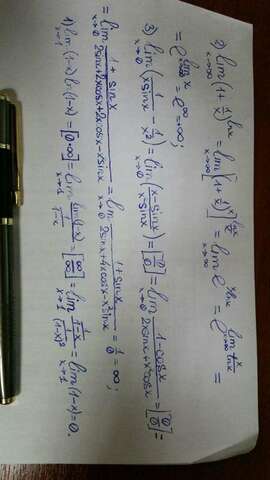 2) lim x→∞ (1+1/x)^lnx = lim x→∞ [(1+1/x)^x]^(lnx/x) = lim x→∞ e^(x/lnx) = e^(lim x→∞ x/lnx) =
= e^(lim x) = e^∞ = +∞;
3) lim x→0 (1/(xsinx) - 1/x²) = lim x→0 (x-sinx)/(x²sinx) = [0/0] = lim x→0 (1-cosx)/(2xsinx+x²cosx) = [0/0] =
= lim x→0 (1+sinx)/(2sinx+2xcosx+2xcosx-x²sinx) = lim x→0 (1+sinx)/(2sinx+4xcosx-x²sinx) = 1/0 = ∞;
1) lim x→1 (1-x)ln(1-x) = [0·∞] = lim x→1 ln(1-x)/(1/(1-x)) = [∞/∞] = lim x→1 (1/(1-x))/(1/(1-x)²) = lim x→1 (1-x) = 0.